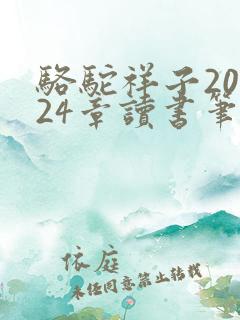 駱駝祥子20
24章讀書筆
依庭
未任同意禁止轉載